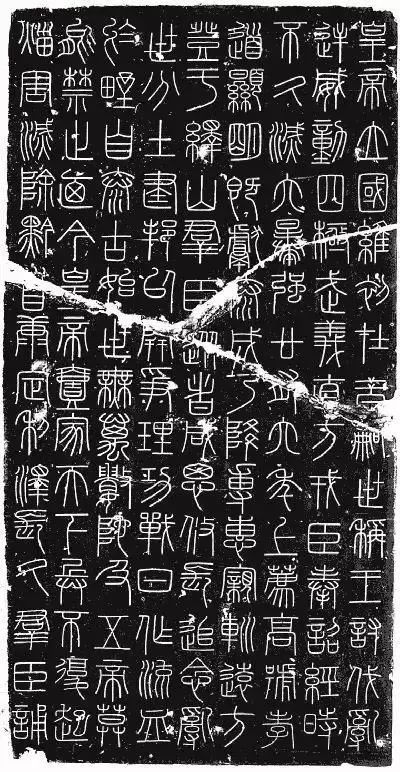 皇帝立國維初在昔嗣世稱王討伐亂
逆威動四極武義直方戎臣奉詔經時
不久滅六暴強廿有六年上薦高號孝
道顯明既獻泰成乃降尃惠寴巡遠方
登于繹山羣臣從者咸思攸長追念亂
世分土建邦以開爭理功戰日作流血
於野自泰古始世無萬數陀及五帝莫
能禁止廼今皇帝壹家天下兵不復起
烖害滅除黔首康定利澤長久羣臣誦